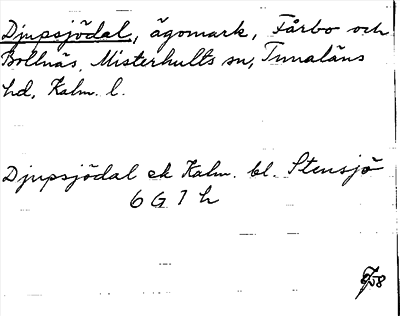 Djupsjödal, ägomark, Fårbo och
Bollnäs, Misterhults sn, Tunaläns
hd, Kalm. l.
Djupsjödal ek Kalm. bl. Stensjö
6 G 7 h